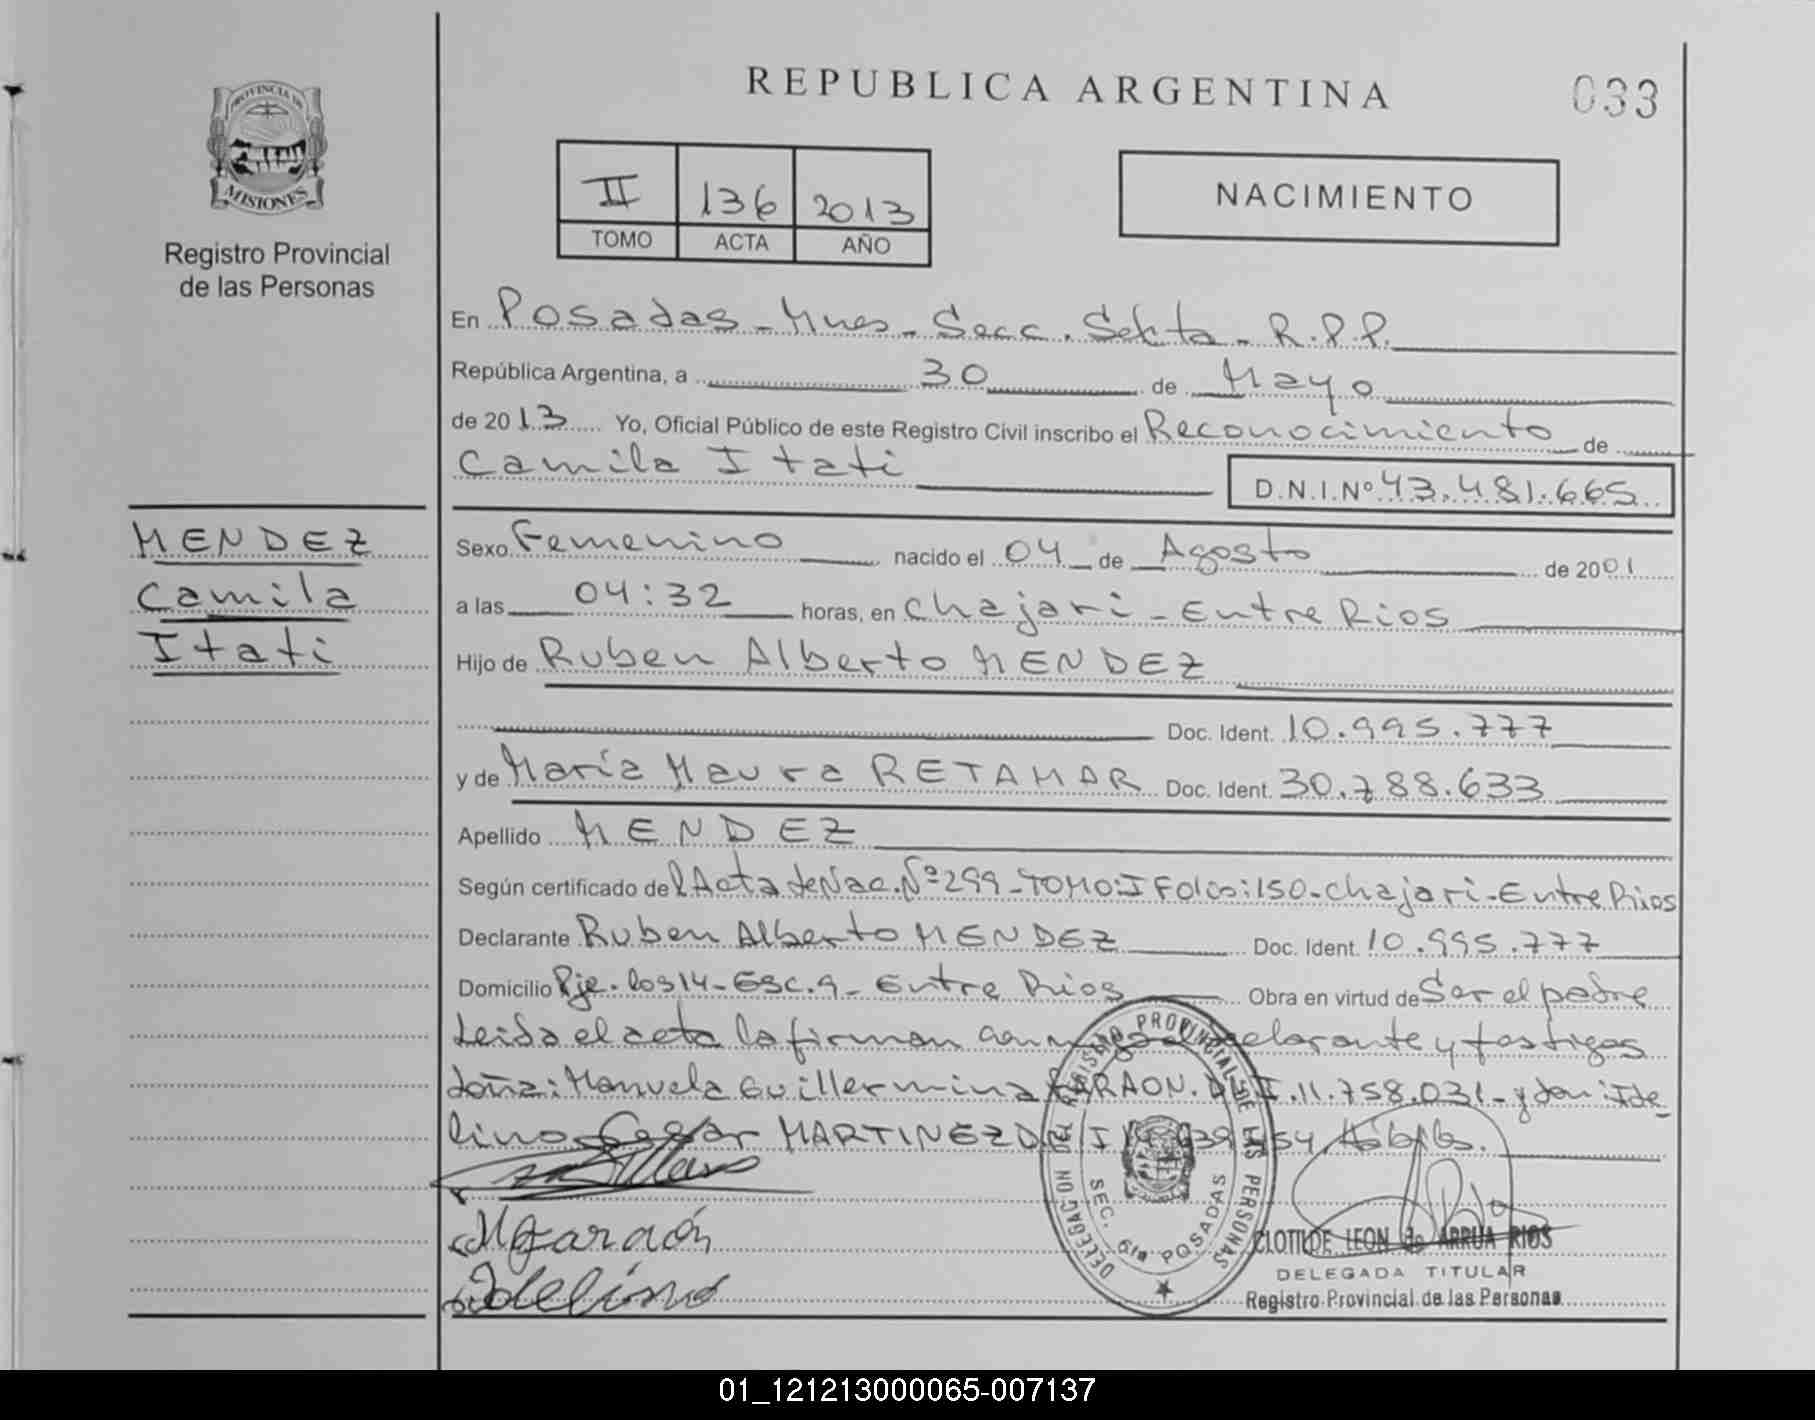 PROVINCIA DE
MISIONES
Registro Provincial
de las Personas
MENDEZ
Camila
Itati
REPUBLICA ARGENTINA
033
II 136 2013
TOMO ACTA AÑO
NACIMIENTO
En Posadas - Mnes - Secc. Sexta - R.P.P.
República Argentina, a 30 de Mayo
de 2013 Yo, Oficial Público de este Registro Civil inscribo el Reconocimiento de
Camila Itati D.N.I.Nº 43.481.665
Sexo Femenino nacido el 04 de Agosto de 2001
a las 04:32 horas, en Chajari - Entre Rios
Hijo de Ruben Alberto MENDEZ
Doc. Ident. 10.995.777
y de María Maura RETAMAR Doc. Ident. 30.788.633
Apellido MENDEZ
Según certificado del Acta de Nac. Nº 299 - TOMO: I Folio: 150 - Chajari - Entre Rios
Declarante Ruben Alberto MENDEZ Doc. Ident. 10.995.777
Domicilio Pje. los 14 - Esc. 9 - Entre Rios Obra en virtud de Ser el padre
Leida el acta la firman conmigo el declarante y testigos
doña: Manuela Guillermina GARAON. D.N.I. 11.758.031 - y don: Ide
lino Cesar MARTINEZ DNI
MGaraón
Idelino
DELEGACION DEL REGISTRO PROVINCIAL DE LAS PERSONAS
SEC. 6ta POSADAS
CLOTILDE LEON de ARRUA RIOS
DELEGADA TITULAR
Registro Provincial de las Personas
01_121213000065-007137